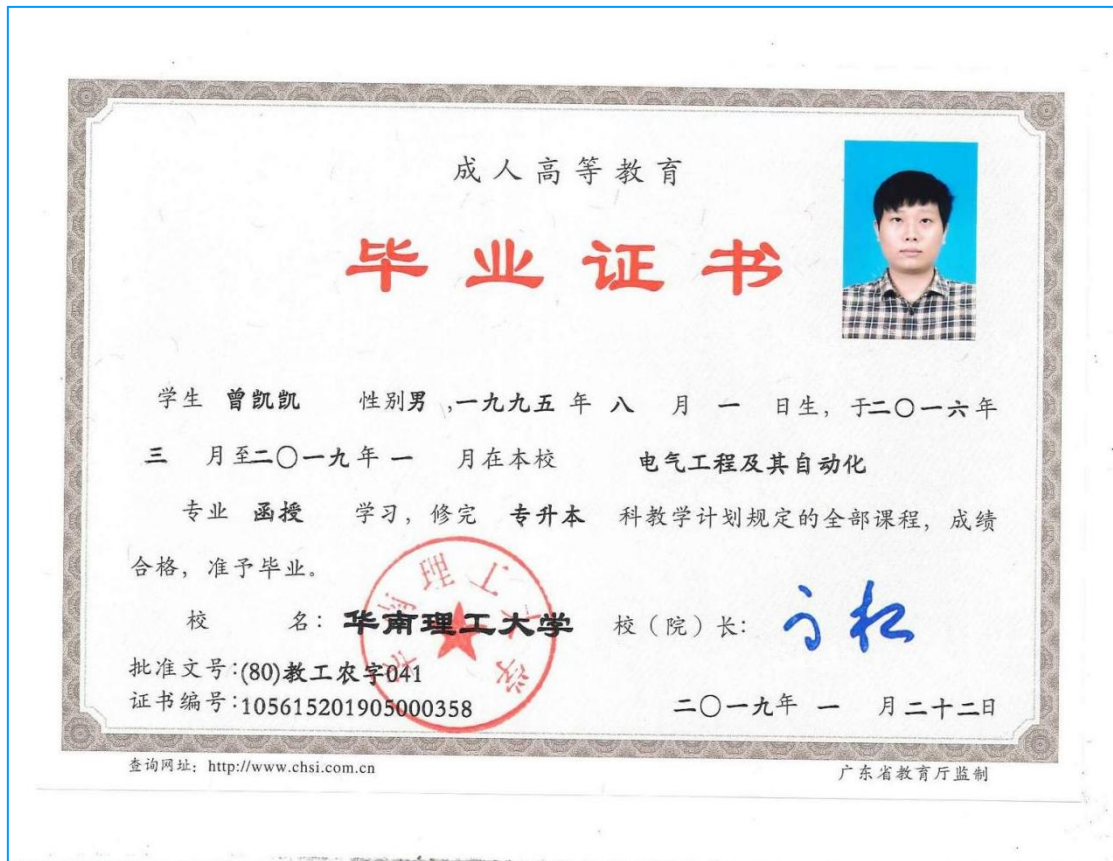 成人高等教育
毕业证书
学生 曾凯凯 性别男,一九九五年 八 月 一 日生,于二〇一六年
三 月至二〇一九年一 月在本校 电气工程及其自动化
专业 函授 学习,修完 专升本 科教学计划规定的全部课程,成绩
合格,准予毕业。
校 名:华南理工大学 校(院)长:
华南理工大学
批准文号:(80)教工农字041
证书编号:105615201905000358 二〇一九年 一 月二十二日
查询网址:http://www.chsi.com.cn 广东省教育厅监制